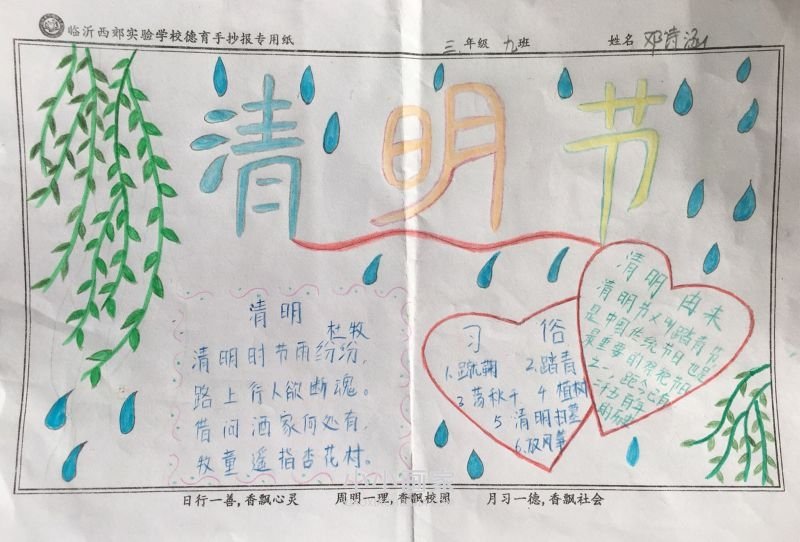 临沂西郊实验学校德育手抄报专用纸
三年级 九班
姓名 邓诗涵
清明节
清明
杜牧
清明时节雨纷纷,
路上行人欲断魂。
借问酒家何处有,
牧童遥指杏花村。
习俗
1.蹴鞠 2.踏青
3.荡秋千 4 植树
5 清明扫墓
6.放风筝
清明由来
清明节又叫踏青节
是中国传统节日也是
最重要的祭祀节日
之一,距今已有
二千五百年
的历史
日行一善,香飘心灵 周明一理,香飘校园 月习一德,香飘社会